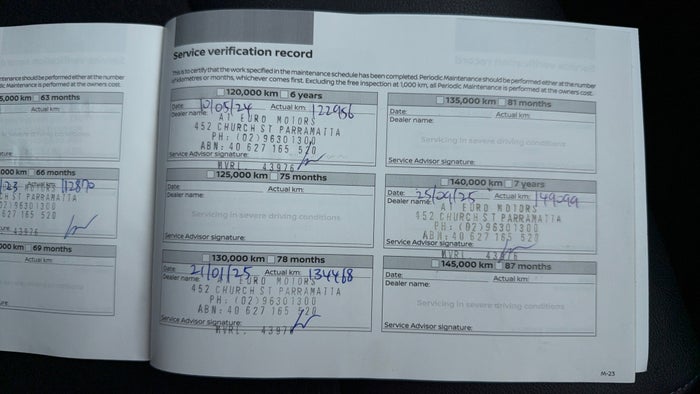 ntenance should be performed either at the number
dic Maintenance is performed at the owners cost.
5,000 km 63 months
Actual km:
ature:
000 km 66 months
/23 Actual km: 112870
CH ST PARRAMATTA
02)96301300
627 165 520
ure: 43976
000 km 69 months
Actual km:
ure:
Service verification record
This is to certify that the work specified in the maintenance schedule has been completed. Periodic Maintenance should be performed either at the number
of kilometres or months, whichever comes first. Excluding the free inspection at 1,000 km, all Periodic Maintenance is performed at the owners cost.
120,000 km 6 years
Date: 10/05/24 Actual km: 122956
Dealer name: A1 EURO MOTORS
452 CHURCH ST PARRAMATTA
PH: (02)96301300
ABN: 40 627 165 520
Service Advisor signature:
MVRL: 43976
125,000 km 75 months
Date: Actual km:
Dealer name:
Servicing in severe driving conditions
Service Advisor signature:
130,000 km 78 months
Date: 21/01/25 Actual km: 134468
Dealer name: A1 EURO MOTORS
452 CHURCH ST PARRAMATTA
PH: (02)96301300
ABN: 40 627 165 520
Service Advisor signature:
MVRL: 43976
135,000 km 81 months
Date: Actual km:
Dealer name:
Servicing in severe driving conditions
Service Advisor signature:
140,000 km 7 years
Date: 25/09/25 Actual km: 149099
Dealer name: A1 EURO MOTORS
452 CHURCH ST PARRAMATTA
PH: (02)96301300
ABN: 40 627 165 520
Service Advisor signature:
MVRL: 43976
145,000 km 87 months
Date: Actual km:
Dealer name:
Servicing in severe driving conditions
Service Advisor signature:
M-23